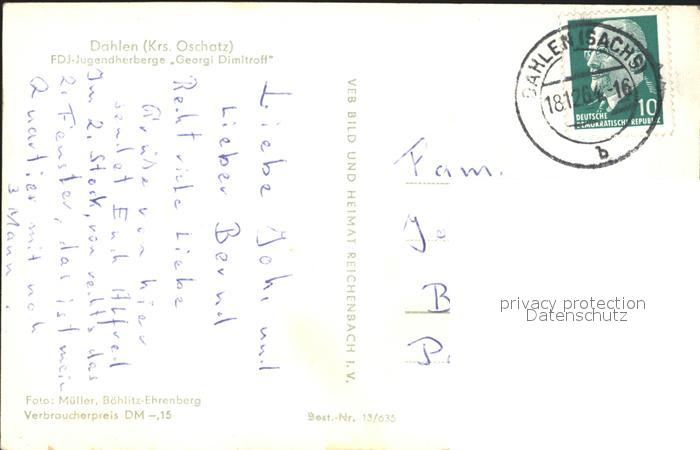 Dahlen (Krs. Oschatz)
FDJ-Jugendherberge „Georgi Dimitroff"
Liebe Joh. und
Lieber Bernd
Recht viele Liebe
Grüße von hier
sendet Euch Alfred
Im 2. Stock, von rechts das
2. Fenster, das ist mein
Quartier mit noch
3 Mann.
Foto: Müller, Böhlitz-Ehrenberg
Verbraucherpreis DM –,15
VEB BILD UND HEIMAT REICHENBACH I. V.
Best.-Nr. 13/635
DAHLEN (SACHS)
18.12.64.-16
b
10
DEUTSCHE
DEMOKRATISCHE REPUBLIK
Fam.
Je
B
P.
privacy protection
Datenschutz